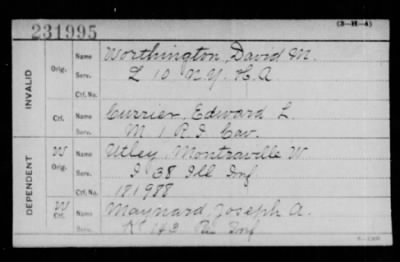 (3-H-4)
231995
INVALID
Orig. Name Worthington, David M.
Serv. L 10 N.Y. H.A
Ctf. No.
Ctf. Name Currier, Edward L.
Serv. M 1 R.I. Cav.
DEPENDENT
W Orig. Name Utley, Montraville W.
Serv. I 38 Ill Inf
Ctf. No. 181988
W Ctf. Name Maynard, Joseph A.
Serv. K 143 Pa Inf